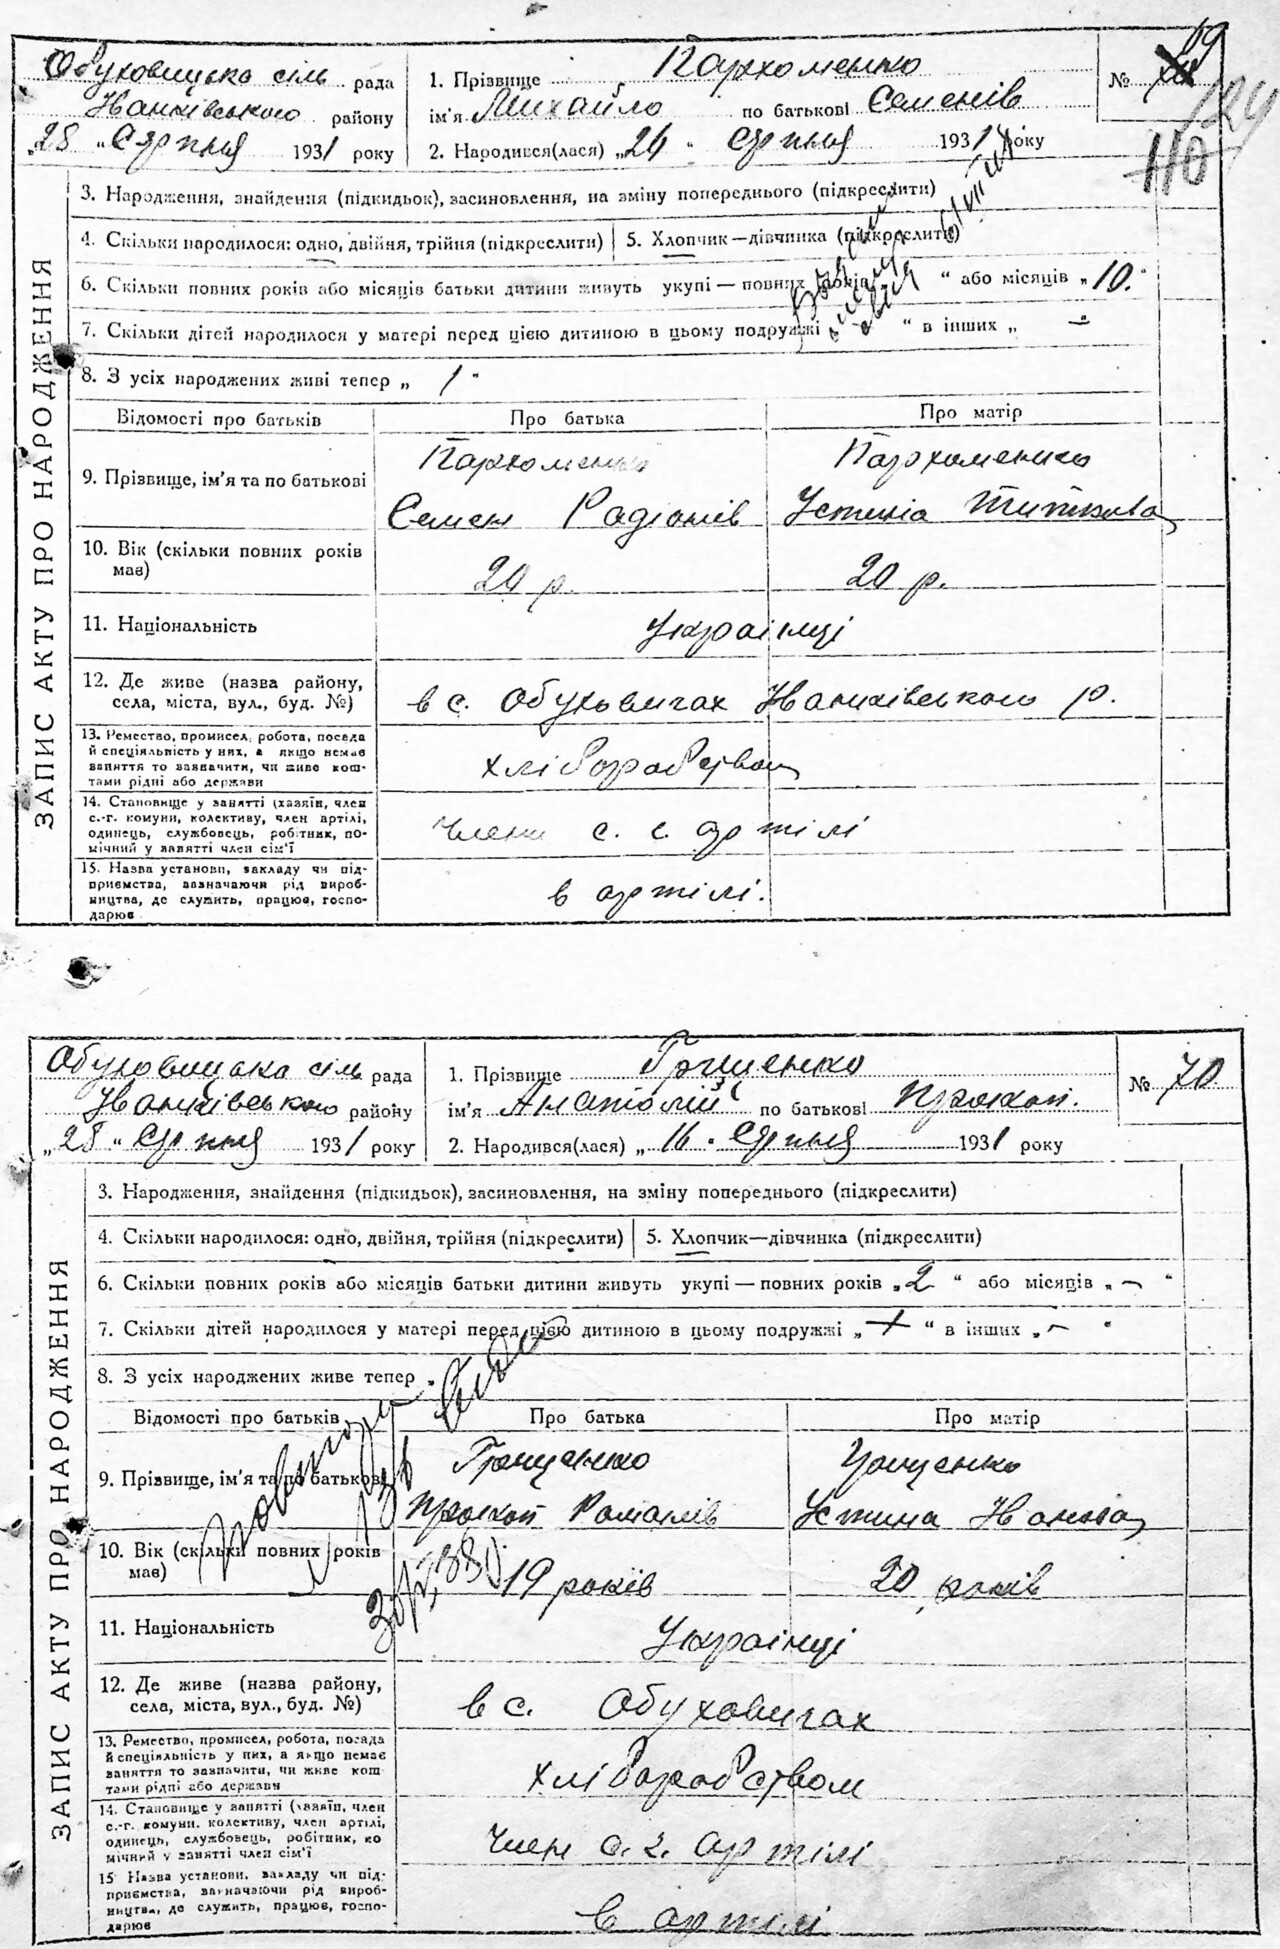 Обуховицька сіль рада
Іванківського району
„28 " Серпня 1931 року
1. Прізвище Пархоменко
ім'я Михайло по батькові Семенів
2. Народився(лася) „24 " Серпня 1931 року
№ 69
124
110
ЗАПИС АКТУ ПРО НАРОДЖЕННЯ
3. Народження, знайдення (підкидьок), засиновлення, на зміну попереднього (підкреслити)
4. Скільки народилося: одно, двійня, трійня (підкреслити) 5. Хлопчик—дівчинка (підкреслити)
6. Скільки повних років або місяців батьки дитини живуть укупі — повних років " або місяців „ 10. "
7. Скільки дітей народилося у матері перед цією дитиною в цьому подружжі " в інших „ — "
8. З усіх народжених живі тепер „ 1 "
Відомості про батьків Про батька Про матір
9. Прізвище, ім'я та по батькові
Пархоменко Пархоменко
Семен Радіонів Устинія Титкова
10. Вік (скільки повних років має) 20 р. 20 р.
11. Національність Українці
12. Де живе (назва району,
села, міста, вул., буд. №) в с. Обуховичах Іванківського р.
13. Ремество, промисел, робота, посада
й спеціяльність у них, а якщо немає
заняття то зазначити, чи живе кош-
тами рідні або держави
хліборобством
14. Становище у занятті (хазяїн, член
с.-г. комуни, колективу, член артілі,
одинець, службовець, робітник, по-
мічний у занятті член сім'ї
члени с. г. артілі
15. Назва установи, закладу чи під-
приємства, зазначаючи рід вироб-
ництва, де служить, працює, госпо-
дарює
в артілі.
Обуховицька сіль рада
Іванківського району
„28 " Серпня 1931 року
1. Прізвище Грищенко
ім'я Анатолій по батькові Прокоп.
2. Народився(лася) „ 16 " Серпня 1931 року
№ 70
ЗАПИС АКТУ ПРО НАРОДЖЕННЯ
3. Народження, знайдення (підкидьок), засиновлення, на зміну попереднього (підкреслити)
4. Скільки народилося: одно, двійня, трійня (підкреслити) 5. Хлопчик—дівчинка (підкреслити)
6. Скільки повних років або місяців батьки дитини живуть укупі — повних років „ 2 " або місяців „ — "
7. Скільки дітей народилося у матері перед цією дитиною в цьому подружжі „ " в інших „ — "
8. З усіх народжених живе тепер „
Відомості про батьків Про батька Про матір
9. Прізвище, ім'я та по батькові
Грищенко Грищенко
Прокоп Романів Устина Іванова
10. Вік (скільки повних років має) 19 років 20 років
11. Національність Українці
12. Де живе (назва району,
села, міста, вул., буд. №) в с. Обуховичах
13. Ремество, промисел, робота, посада
й спеціяльність у них, а якщо немає
заняття то зазначити, чи живе кош
тами рідні або держави
хліборобством
14. Становище у занятті (хазяїн, член
с.-г. комуни, колективу, член артілі,
одинець, службовець, робітник, по
мічний у занятті член сім'ї
член с. г. артілі
15 Назва установи, закладу чи під-
приємства, зазначаючи рід вироб-
ництва, де служить, працює, госпо-
дарює
в артілі